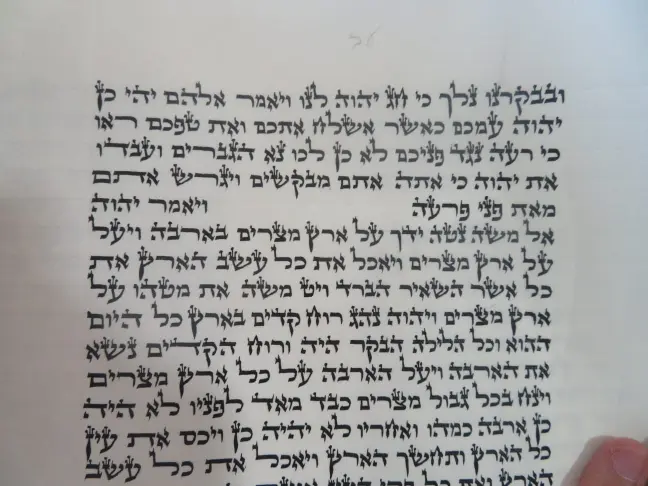 ובבקרנו נלך כי חג יהוה לנו ויאמר אלהם יהי כן
יהוה עמכם כאשר אשלח אתכם ואת טפכם ראו
כי רעה נגד פניכם לא כן לכו נא הגברים ועבדו
את יהוה כי אתה אתם מבקשים ויגרש אתם
מאת פני פרעה ויאמר יהוה
אל משה נטה ידך על ארץ מצרים בארבה ויעל
על ארץ מצרים ויאכל את כל עשב הארץ את
כל אשר השאיר הברד ויט משה את מטהו על
ארץ מצרים ויהוה נהג רוח קדים בארץ כל היום
ההוא וכל הלילה הבקר היה ורוח הקדים נשא
את הארבה ויעל הארבה על כל ארץ מצרים
וינח בכל גבול מצרים כבד מאד לפניו לא היה
כן ארבה כמהו ואחריו לא יהיה כן ויכס את עין
כל הארץ ותחשך הארץ ויאכל את כל עשב
הארץ ואת כל פרי העץ אשר